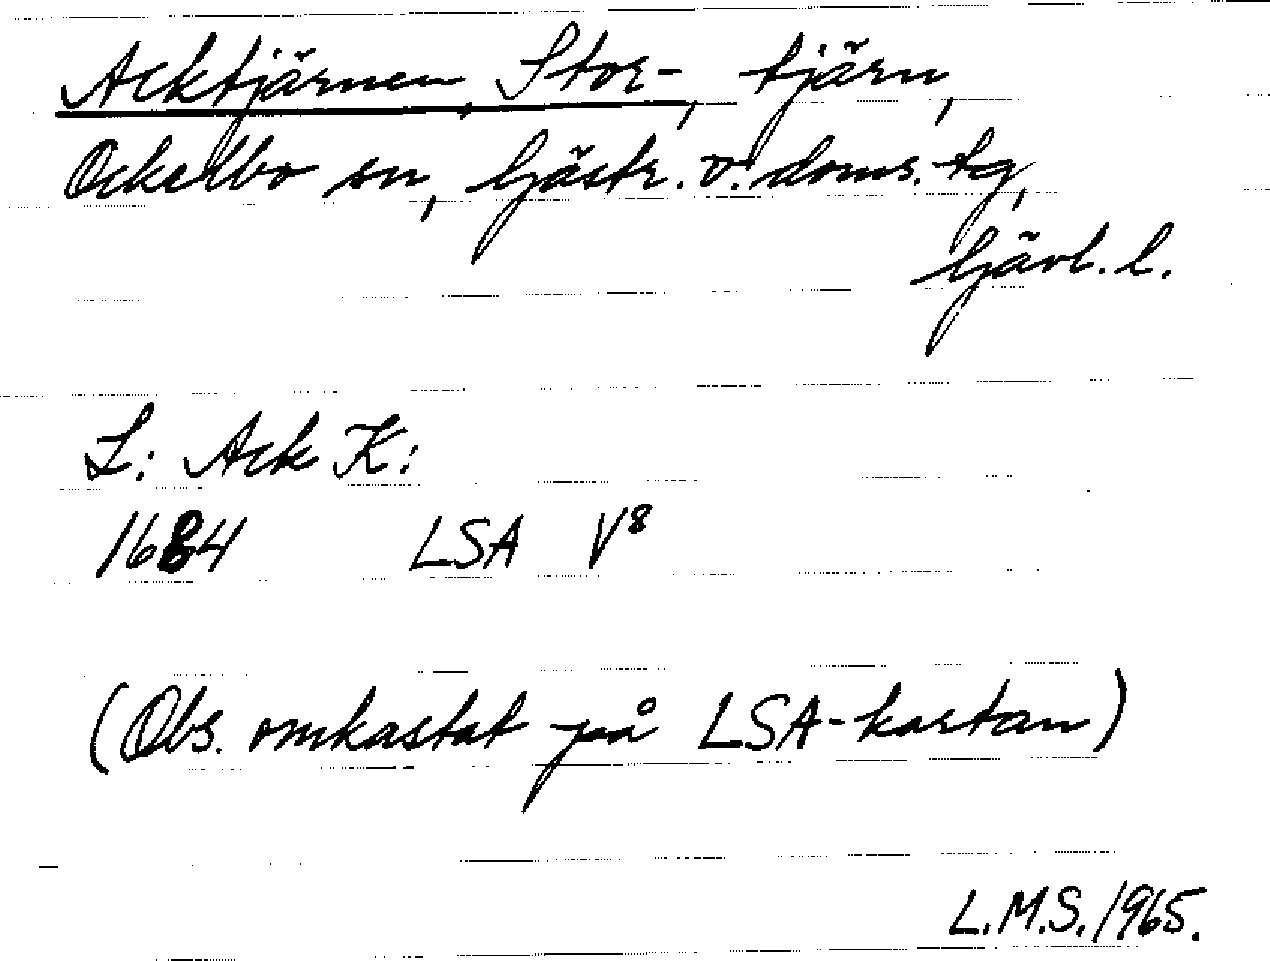 Acktjärnen, Stor-, tjärn,
Ockelbo sn, Gästr. v. doms. tg,
Gävl. l.
L: Ack K:
1684 LSA V⁸
(Obs. omkastat på LSA-kartan)
L.M.S. 1965.